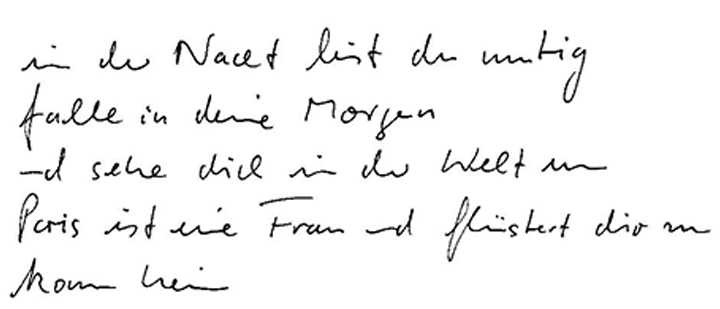 in der Nacht bist du mutig
falle in deine Morgen
und sehe dich in der Welt um
Paris ist eine Frau und flüstert dir zu
komm herein